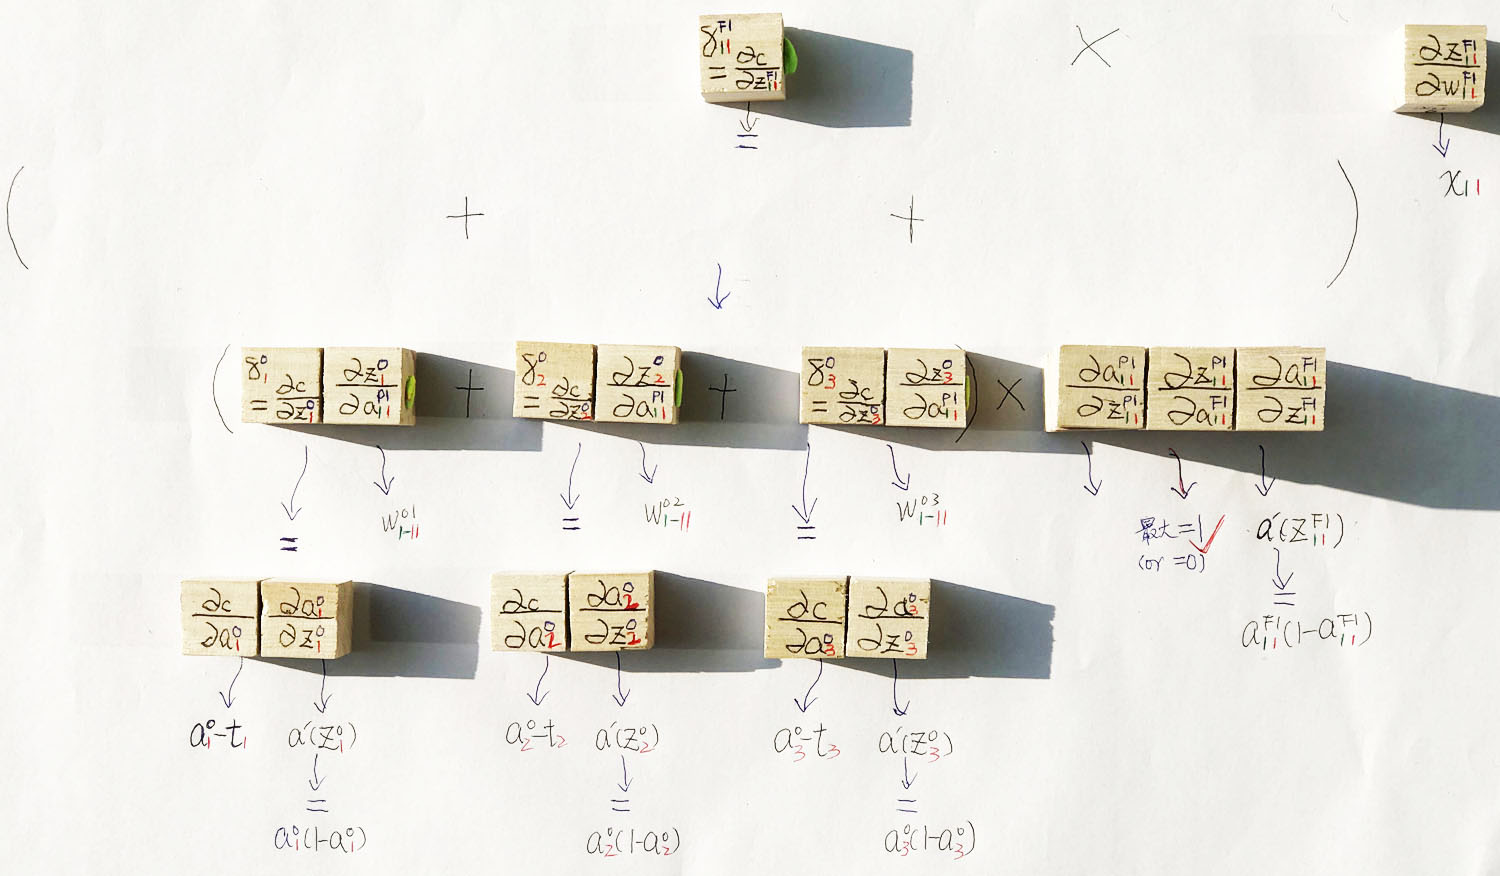 δ₁₁ᶠ¹ = ∂c/∂z₁₁ᶠ¹ × ∂z₁₁ᶠ¹/∂w₁₁ᶠ¹
↓ ↓
= x₁₁
( + + )
↓
( δ₁⁰ = ∂c/∂z₁⁰ ∂z₁⁰/∂a₁₁ᴾ¹ + δ₂⁰ = ∂c/∂z₂⁰ ∂z₂⁰/∂a₁₁ᴾ¹ + δ₃⁰ = ∂c/∂z₃⁰ ∂z₃⁰/∂a₁₁ᴾ¹ ) × ∂a₁₁ᴾ¹/∂z₁₁ᴾ¹ ∂z₁₁ᴾ¹/∂a₁₁ᶠ¹ ∂a₁₁ᶠ¹/∂z₁₁ᶠ¹
↓ ↓ ↓ ↓ ↓ ↓ ↓ ↓ ↓
= w₁₋₁₁⁰¹ = w₁₋₁₁⁰² = w₁₋₁₁⁰³ 最大=1 ✓ a′(z₁₁ᶠ¹)
(or =0) ↓
=
a₁₁ᶠ¹(1-a₁₁ᶠ¹)
∂c/∂a₁⁰ ∂a₁⁰/∂z₁⁰ ∂c/∂a₂⁰ ∂a₂⁰/∂z₂⁰ ∂c/∂a₃⁰ ∂a₃⁰/∂z₃⁰
↓ ↓ ↓ ↓ ↓ ↓
a₁⁰-t₁ a′(z₁⁰) a₂⁰-t₂ a′(z₂⁰) a₃⁰-t₃ a′(z₃⁰)
↓ ↓ ↓
= = =
a₁⁰(1-a₁⁰) a₂⁰(1-a₂⁰) a₃⁰(1-a₃⁰)